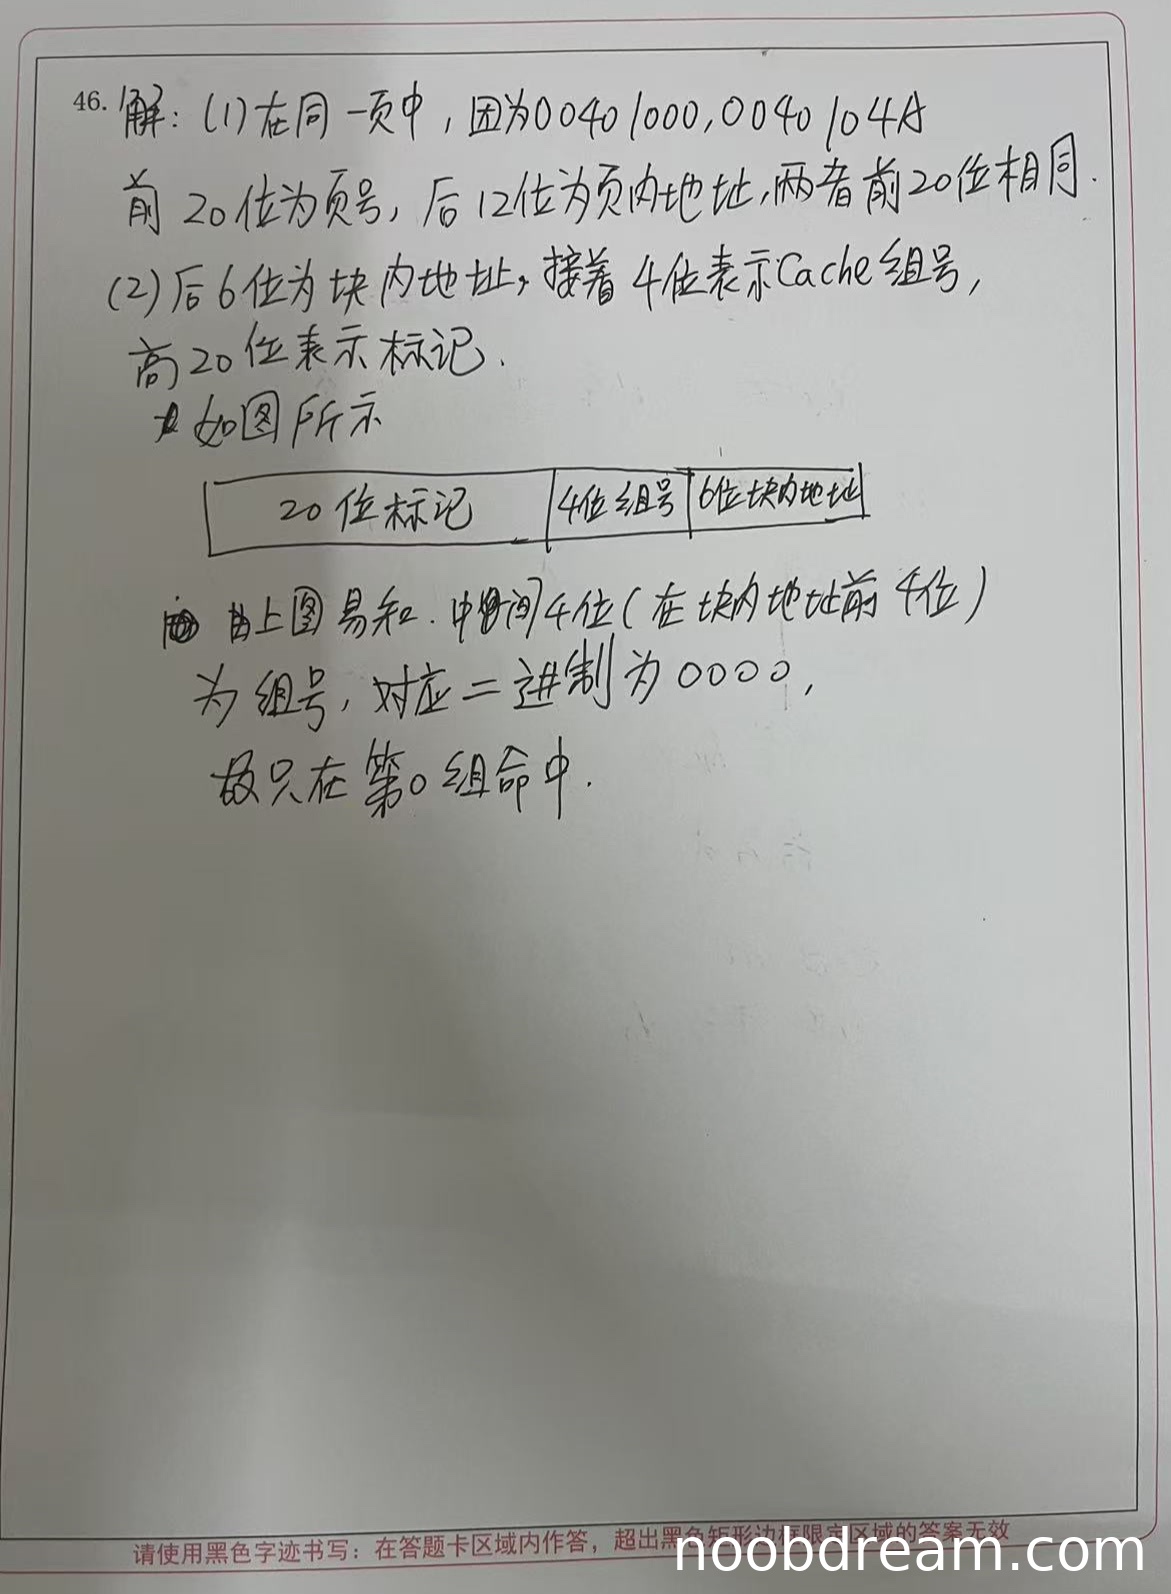 46. 解:(1)在同一页中,因为0040 1000,0040 104A
前 20位为页号,后12位为页内地址,两者前20位相同.
(2)后6位为块内地址,接着4位表示Cache组号,
高20位表示标记.
如图所示
20位标记 4位组号 6位块内地址
由上图易知.中间4位(在块内地址前4位)
为组号,对应二进制为0000,
故只在第0组命中.
请使用黑色字迹书写:在答题卡区域内作答,超出黑色矩形边框限定区域的答案无效
noobdream.com